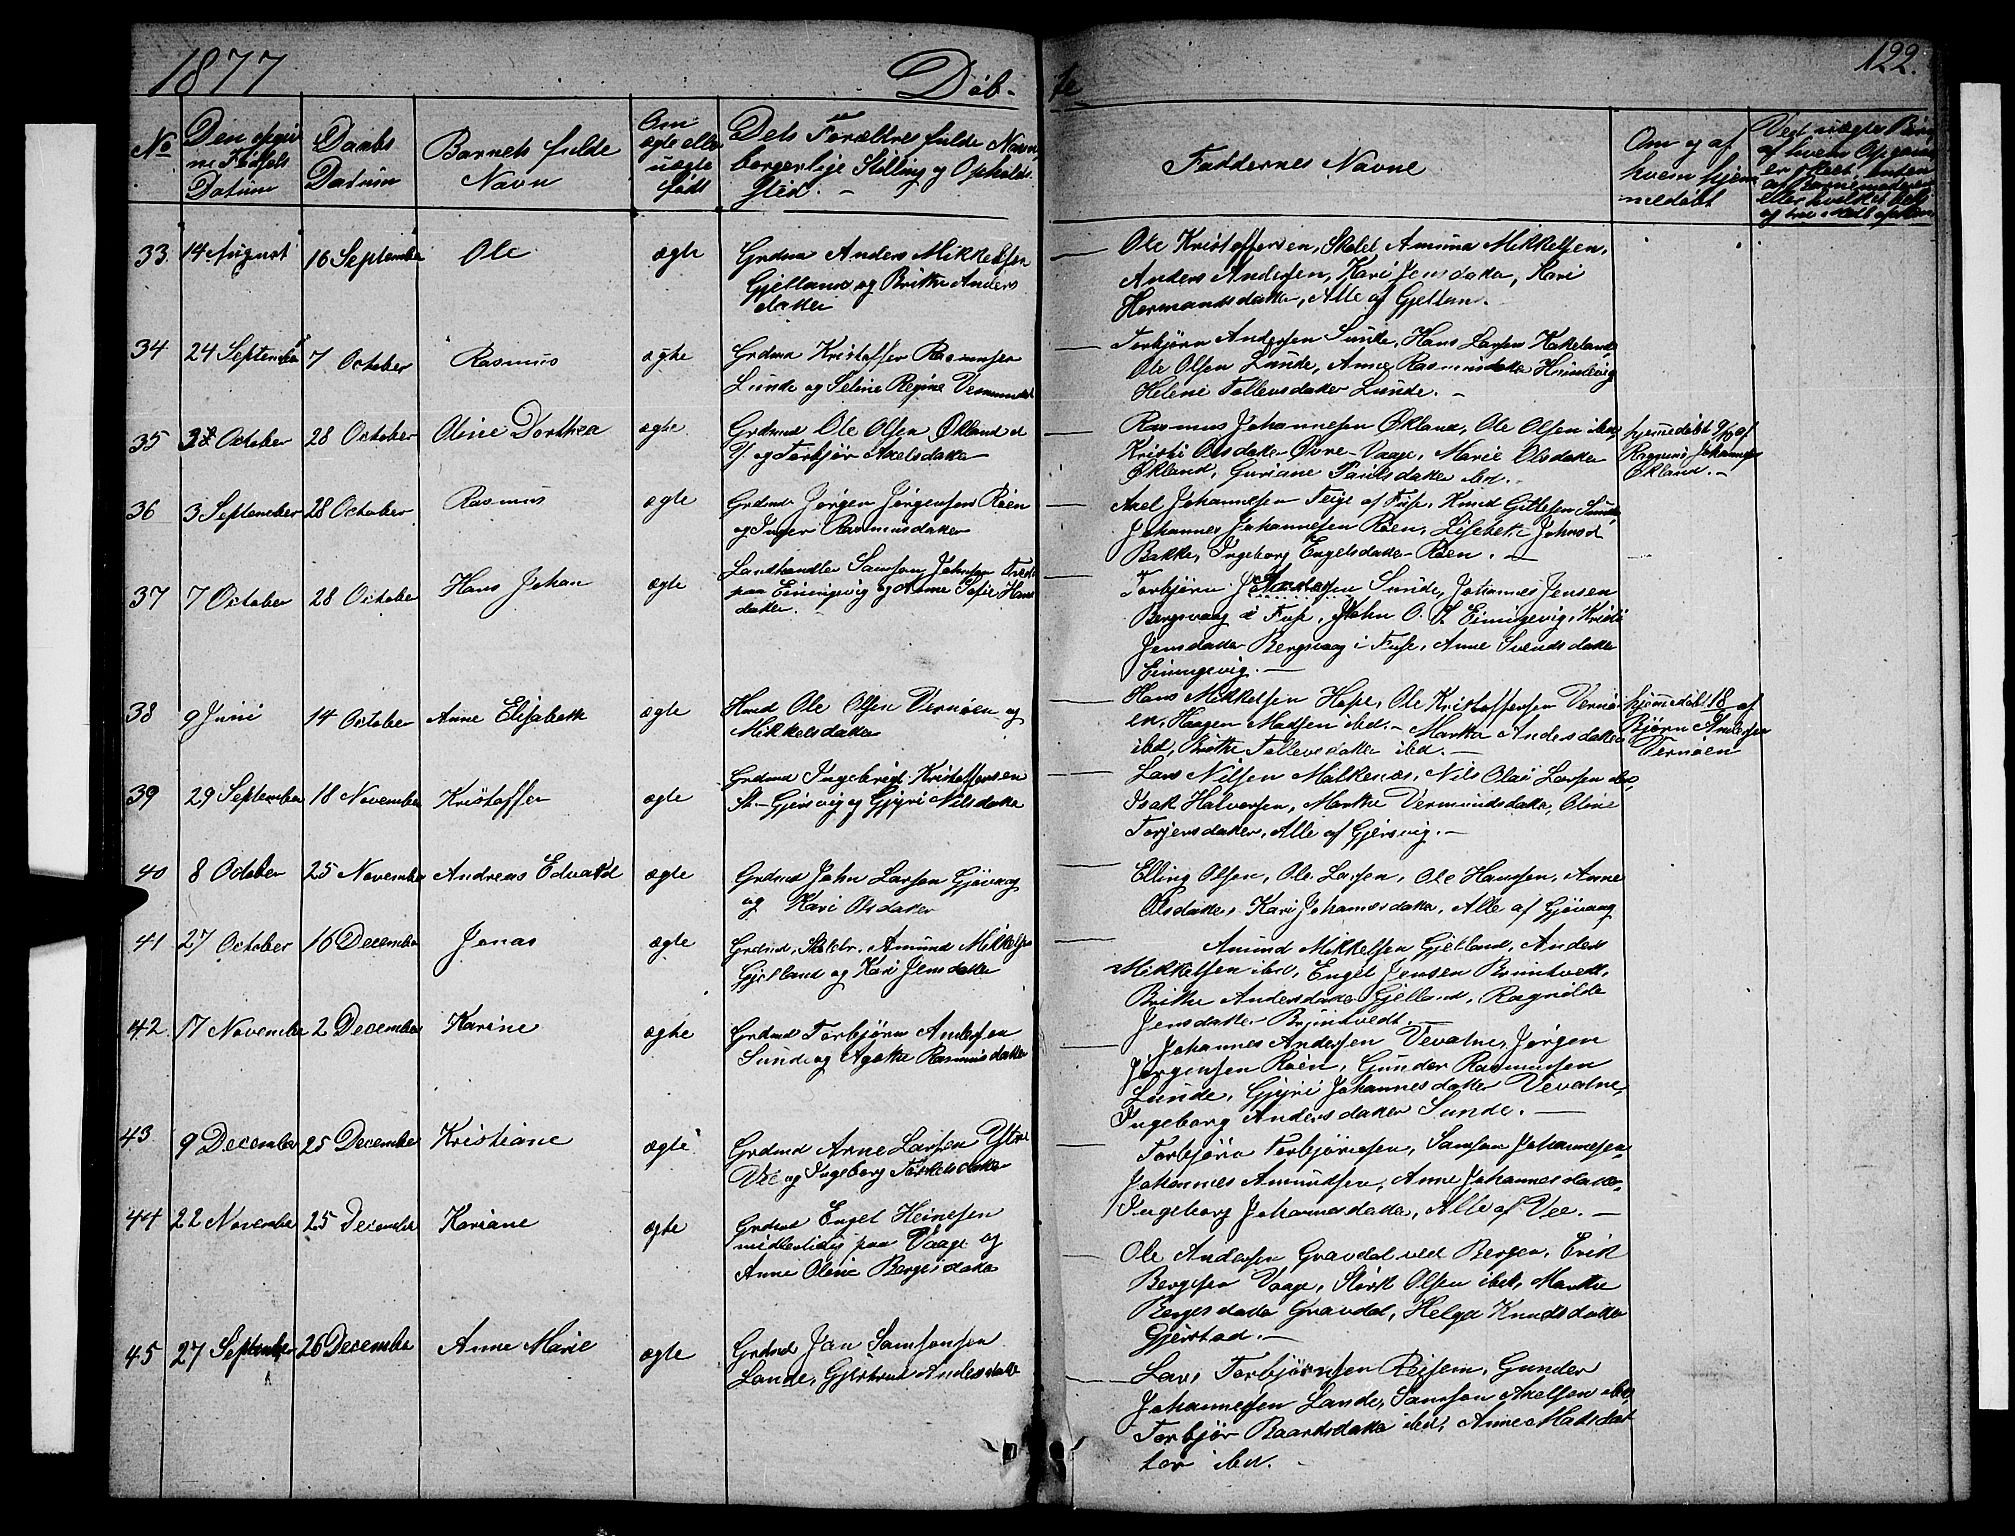 1877
Døb-
te
122.
No
Den opgiv
ne Fødsels
Datum
Daabs
Datum
Barnets fulde
Navn
Om
ægte eller
uægte
født
Dets Forældres fulde Navn,
borgerlige Stilling og Opholds
Sted. -
Faddernes Navne
Om og af
hvem hjem
medøbt
Ved uægte Børn
af hvem Opgaven
er skeet, enten
af Barnemoderen
eller
33 14 August 16 September Ole ægte Grdmd Anders Mikkelsen
Gjelland og Brithe Anders
datter
Ole Kristoffersen, Skolel Amund Mikkelsen,
Anders Andersen, Kari Jensdatter, Kari
Hermandsdatter, Alle af Gjelland.
34 24 September 7 October Rasmus ægte Grdmd Kristoffer Rasmusen
Lunde og Seline Regine Vermundsd
Torbjørn Andersen Sunde, Hans Larsen Hakeland
Ole Olsen Lunde, Anne Rasmusdatter Humlevig
Helene Tollevsdatter Lunde. -
35 October 28 October Oline Dorthea ægte Grdmd Ole Olsen Økland d
Y. og Torbjør Axelsdatter
Rasmus Johannesen Økland, Ole Olsen ibd,
Kristi Olsdatter Øvre-Vaage, Marie Olsdatter
Økland, Guriane Paulsdatter ibd. -
hjemedøbt 9/10 af
Rasmus Johannes
Økland. -
36 3 September 28 October Rasmus ægte Grdmd Jørgen Jørgensen Røen
og Inger Rasmusdatter
Axel Johannesen Teige af Fuse, Knud Gitlesen Sunde
Johannes Johannesen Røen, Lisebet Johnsd
Bakke, Ingeborg Engelsdatter Røen. -
37 7 October 28 October Hans Johan ægte Landhandler Samson Johnson Trede
paa Einingevig og Anne Sofie Hans
datter.
Torbjørn Andersen Sunde, Johannes Jensen
Bergsvaag i Fuse, John O. S. Einingevig, Kristi
Jensdatter Bergsvaag i Fuse, Anne Svendsdatter
Einingevig. -
38 9 Juni 14 October Anne Elisabeth ægte Hmd Ole Olsen Vernøen og
Mikkelsdatter
Hans Mikkelsen Hope, Ole Kristoffersen Vernø-
en, Haagen Madsen ibd. - Martha Andersdatter
ibd, Brithe Tollevsdatter ibd. -
hjemedøbt 18 af
Bjørn Andersen
Vernøen
39 29 September 18 November Kristoffer ægte Grdmd Ingebrigt Kristoffersen
St-Gjersvig og Gjyri Nilsdatter
Lars Nilsen Malkenæs, Nils Olai Larsen ibd,
Isak Halvorsen, Marthe Vermundsdatter, Oline
Torjersdatter, Alle af Gjersvig. -
40 8 October 25 November Andreas Edvard ægte Grdmd John Larsen Gjøvaag
og Kari Olsdatter
Elling Olsen, Ole Larsen, Ole Hansen, Anne
Olsdatter, Kari Johannesdatter, Alle af Gjøvaag
41 27 October 16 December Jonas ægte Grdmd, Skolelr. Amund Mikkelsen
Gjelland og Kari Jensdatter
Amund Mikkelsen Gjelland, Anders
Mikkelsen ibd, Engel Jensen Bruntvedt,
Brithe Andersdatter Gjelland, Ragnilde
Jensdatter Bruntvedt. -
42. 17 November 2 December Karine ægte Grdmd Torbjørn Andersen
Sunde og Agathe Rasmusdatter
Johannes Andersen Tevatne, Jørgen
Jørgensen Røen, Gunder Rasmussen
Lunde, Gjyri Johannesdatter Vevatne,
Ingeborg Andersdatter Sunde. -
43 9 December 25 December Kristiane ægte Grdmd Arne Larsen Ytre
Vee og Ingeborg Torkelsdatter
Torbjørn Torbjørnsen, Samson Johannesen,
Johannes Amundsen, Anne Johannesdatter,
Ingeborg Johannesdatter, Alle af Vee. -
44 22 November 25 December Kariane ægte Grdmd Engel Heinesen
midlertidig paa Vaage og
Anne Oline Bergesdatter
Ole Andersen Gravdal ved Bergen, Erik
Bergesen Vaage, Størk Olsen ibd, Marthe
Bergesdatter Gravdal, Helga Knudsdatter
Gjerstad. -
45 27 September 26 December Anne Marie ægte Grdmd Jan Samsonsen
Lande, Gjertrud Andersdatter
Lars Torbjørnsen Reisem, Gunder
Johannesen Lande, Samson Axelsen ibd,
Torbjør Baardsdatter ibd, Anne Madsdat
ter ibd. -